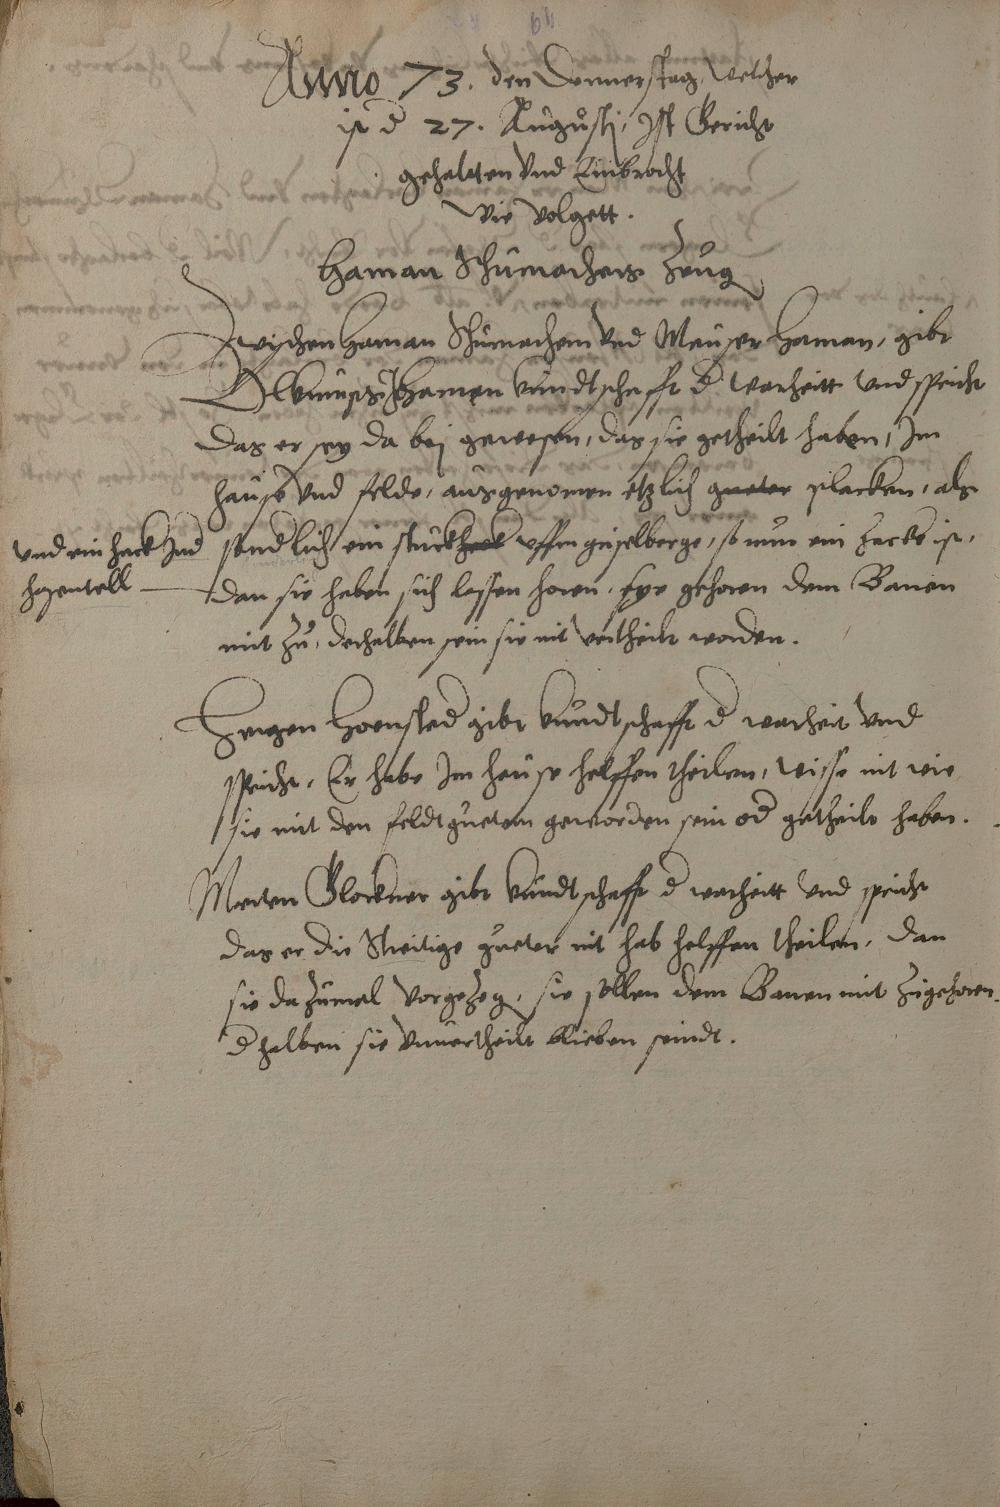 Anno 73. den Donnerstag, welcher
ist d 27. Augusti, Ist Gericht
gehaltten vnd Einbracht
wie volgett.
Haman Schumachers Zeug
Zwischen Haman Schumachern vnd Meuser Haman, gibt
Haman kundtschafft d warheitt vnd spricht
das er sey da bej gewesen, das sie getheilt haben, Im
hause vnd felde, ausgenomen etzlich gueter placken, als
vnd ein heck Ind
hasentell
sondlich ein stuck heck vffm giselberge, so nun ein hecke ist,
dan sie haben sich lassen horen, gehoren dem Bauen
mit zu, derhalben sein sie nit vertheilt worden.
Hengen gibt kundtschafft d warheit vnd
spricht, Er habe Im hause helffen theilen, wisse nit wie
sie mit den feldtguetern geworden sein od getheilt haben.
Merten Glockner gibt kundtschafft d warheitt vnd spricht
das er die streitige gueter nit hab helffen theilen, dan
sie da zumal vorgezog, sie sollen dem Bauen mit zugehoren.
d halben sie vnuertheilt blieben seindt.